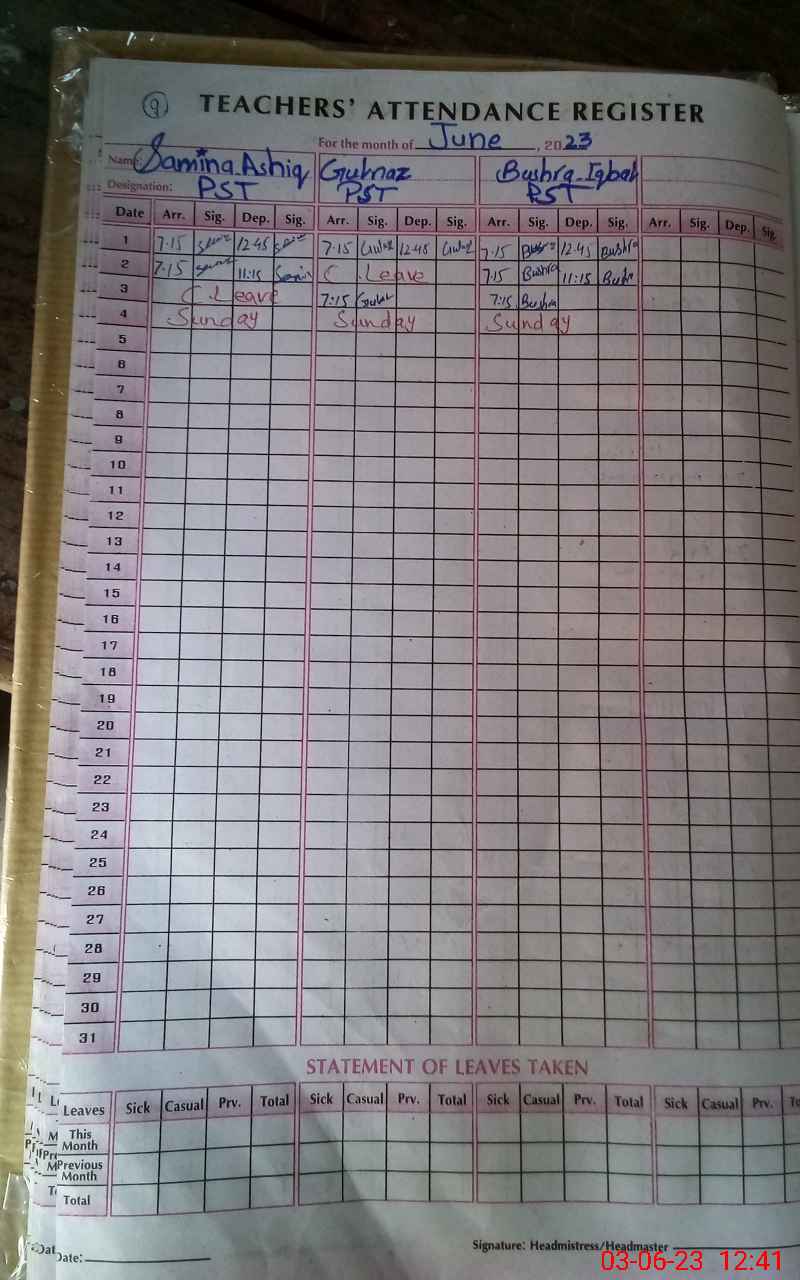 9 TEACHERS' ATTENDANCE REGISTER
For the month of June, 2023
Name Samina Ashiq Gulnaz Bushra Iqbal
Designation: PST PST PST
Date Arr. Sig. Dep. Sig. Arr. Sig. Dep. Sig. Arr. Sig. Dep. Sig. Arr. Sig. Dep. Sig.
1 7.15 12.45 7.15 Gulnaz 12.45 Gulnaz 7.15 Bushra 12.45 Bushra
2 7.15 11:15 C Leave 7.15 Bushra 11:15 Bushra
3 C Leave 7:15 Gulnaz 7:15 Bushra
4 Sunday Sunday Sunday
5
6
7
8
9
10
11
12
13
14
15
16
17
18
19
20
21
22
23
24
25
26
27
28
29
30
31
STATEMENT OF LEAVES TAKEN
Leaves Sick Casual Prv. Total Sick Casual Prv. Total Sick Casual Prv. Total Sick Casual Prv.
This Month
Previous Month
Total
Signature: Headmistress/Headmaster
Date:
03-06-23 12:41